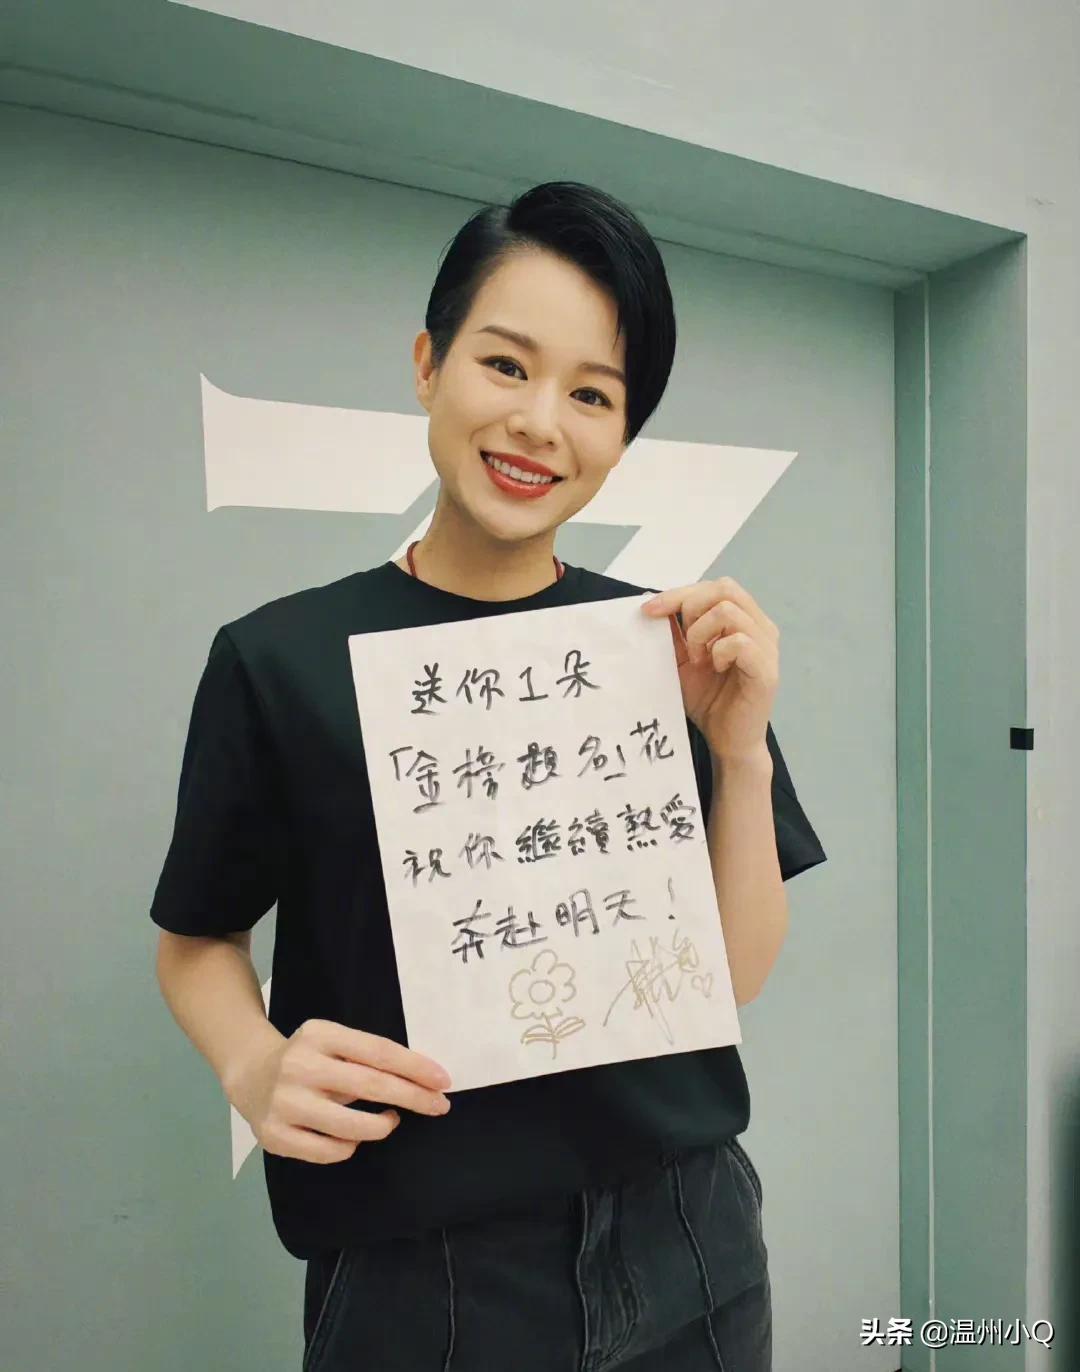 送你1朵
「金榜題名」花
祝你繼續熱愛,
奔赴明天!
头条 @温州小Q